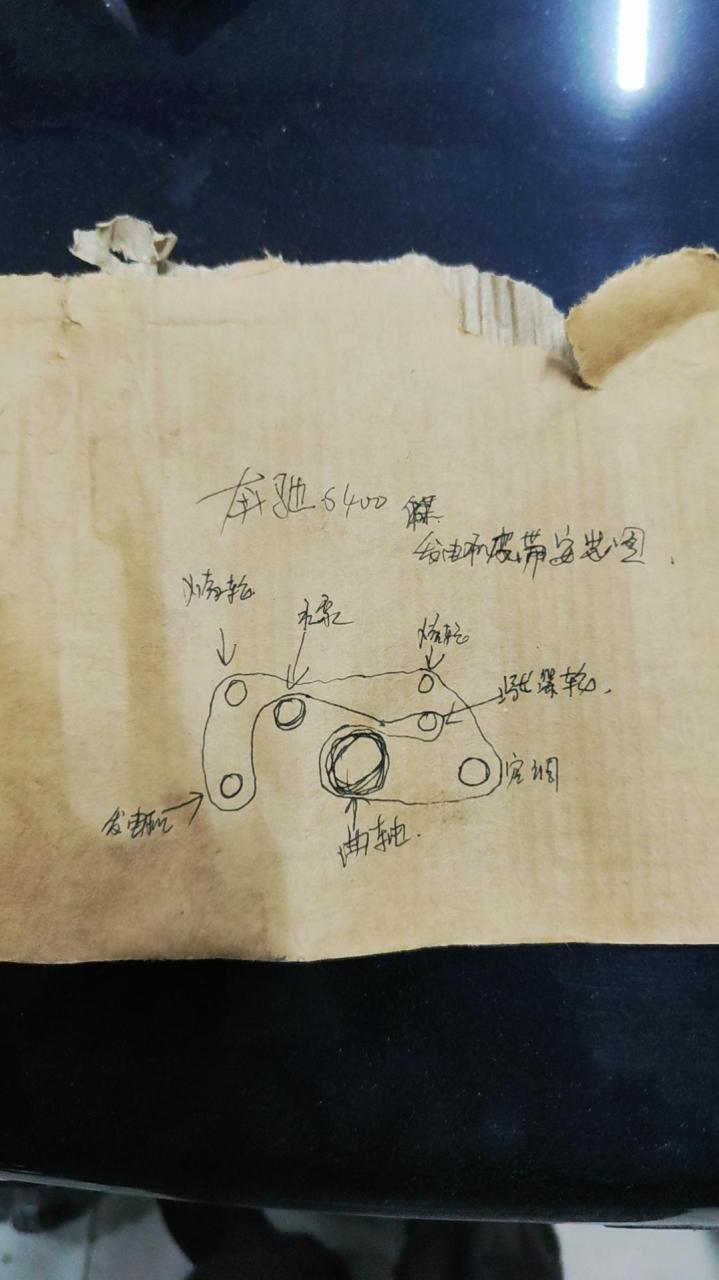 奔驰S400
发电机皮带安装图.
惰轮
水泵
惰轮
涨紧轮.
空调
发电机
曲轴.